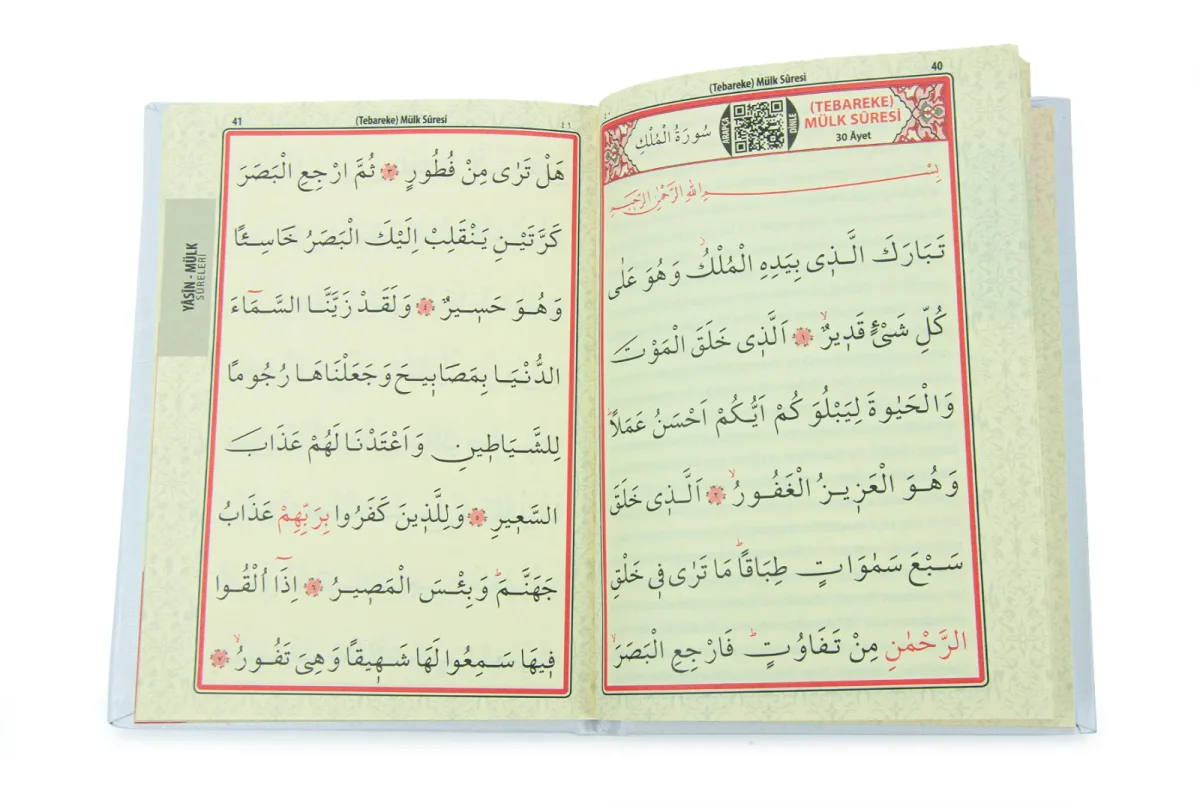 (Tebareke) Mülk Sûresi
40
٤٠
(TEBAREKE)
MÜLK SÛRESİ
30 Âyet
ARAPÇA
DİNLE
سُورَةُ الْمُلْكِ
بِسْمِ اللهِ الرَّحْمٰنِ الرَّحِيمِ
تَبَارَكَ الَّذ۪ى بِيَدِهِ الْمُلْكُۘ وَهُوَ عَلٰى
كُلِّ شَىْءٍ قَد۪يرٌۙ ﴿١﴾ اَلَّذ۪ى خَلَقَ الْمَوْتَ
وَالْحَيٰوةَ لِيَبْلُوَكُمْ اَيُّكُمْ اَحْسَنُ عَمَلًاۜ
وَهُوَ الْعَز۪يزُ الْغَفُورُۙ ﴿٢﴾ اَلَّذ۪ى خَلَقَ
سَبْعَ سَمٰوَاتٍ طِبَاقًاۜ مَا تَرٰى ف۪ى خَلْقِ
الرَّحْمٰنِ مِنْ تَفَاوُتٍۜ فَارْجِعِ الْبَصَرَۙ
41
(Tebareke) Mülk Sûresi
٤١
YÂSÎN - MÜLK
SÛRELERİ
هَلْ تَرٰى مِنْ فُطُورٍ ﴿٣﴾ ثُمَّ ارْجِعِ الْبَصَرَ
كَرَّتَيْنِ يَنْقَلِبْ اِلَيْكَ الْبَصَرُ خَاسِئًا
وَهُوَ حَس۪يرٌ ﴿٤﴾ وَلَقَدْ زَيَّنَّا السَّمَٓاءَ
الدُّنْيَا بِمَصَاب۪يحَ وَجَعَلْنَاهَا رُجُومًا
لِلشَّيَاط۪ينِ وَاَعْتَدْنَا لَهُمْ عَذَابَ
السَّع۪يرِ ﴿٥﴾ وَلِلَّذ۪ينَ كَفَرُوا بِرَبِّهِمْ عَذَابُ
جَهَنَّمَۜ وَبِئْسَ الْمَص۪يرُ ﴿٦﴾ اِذَٓا اُلْقُوا
ف۪يهَا سَمِعُوا لَهَا شَه۪يقًا وَهِىَ تَفُورُۙ ﴿٧﴾